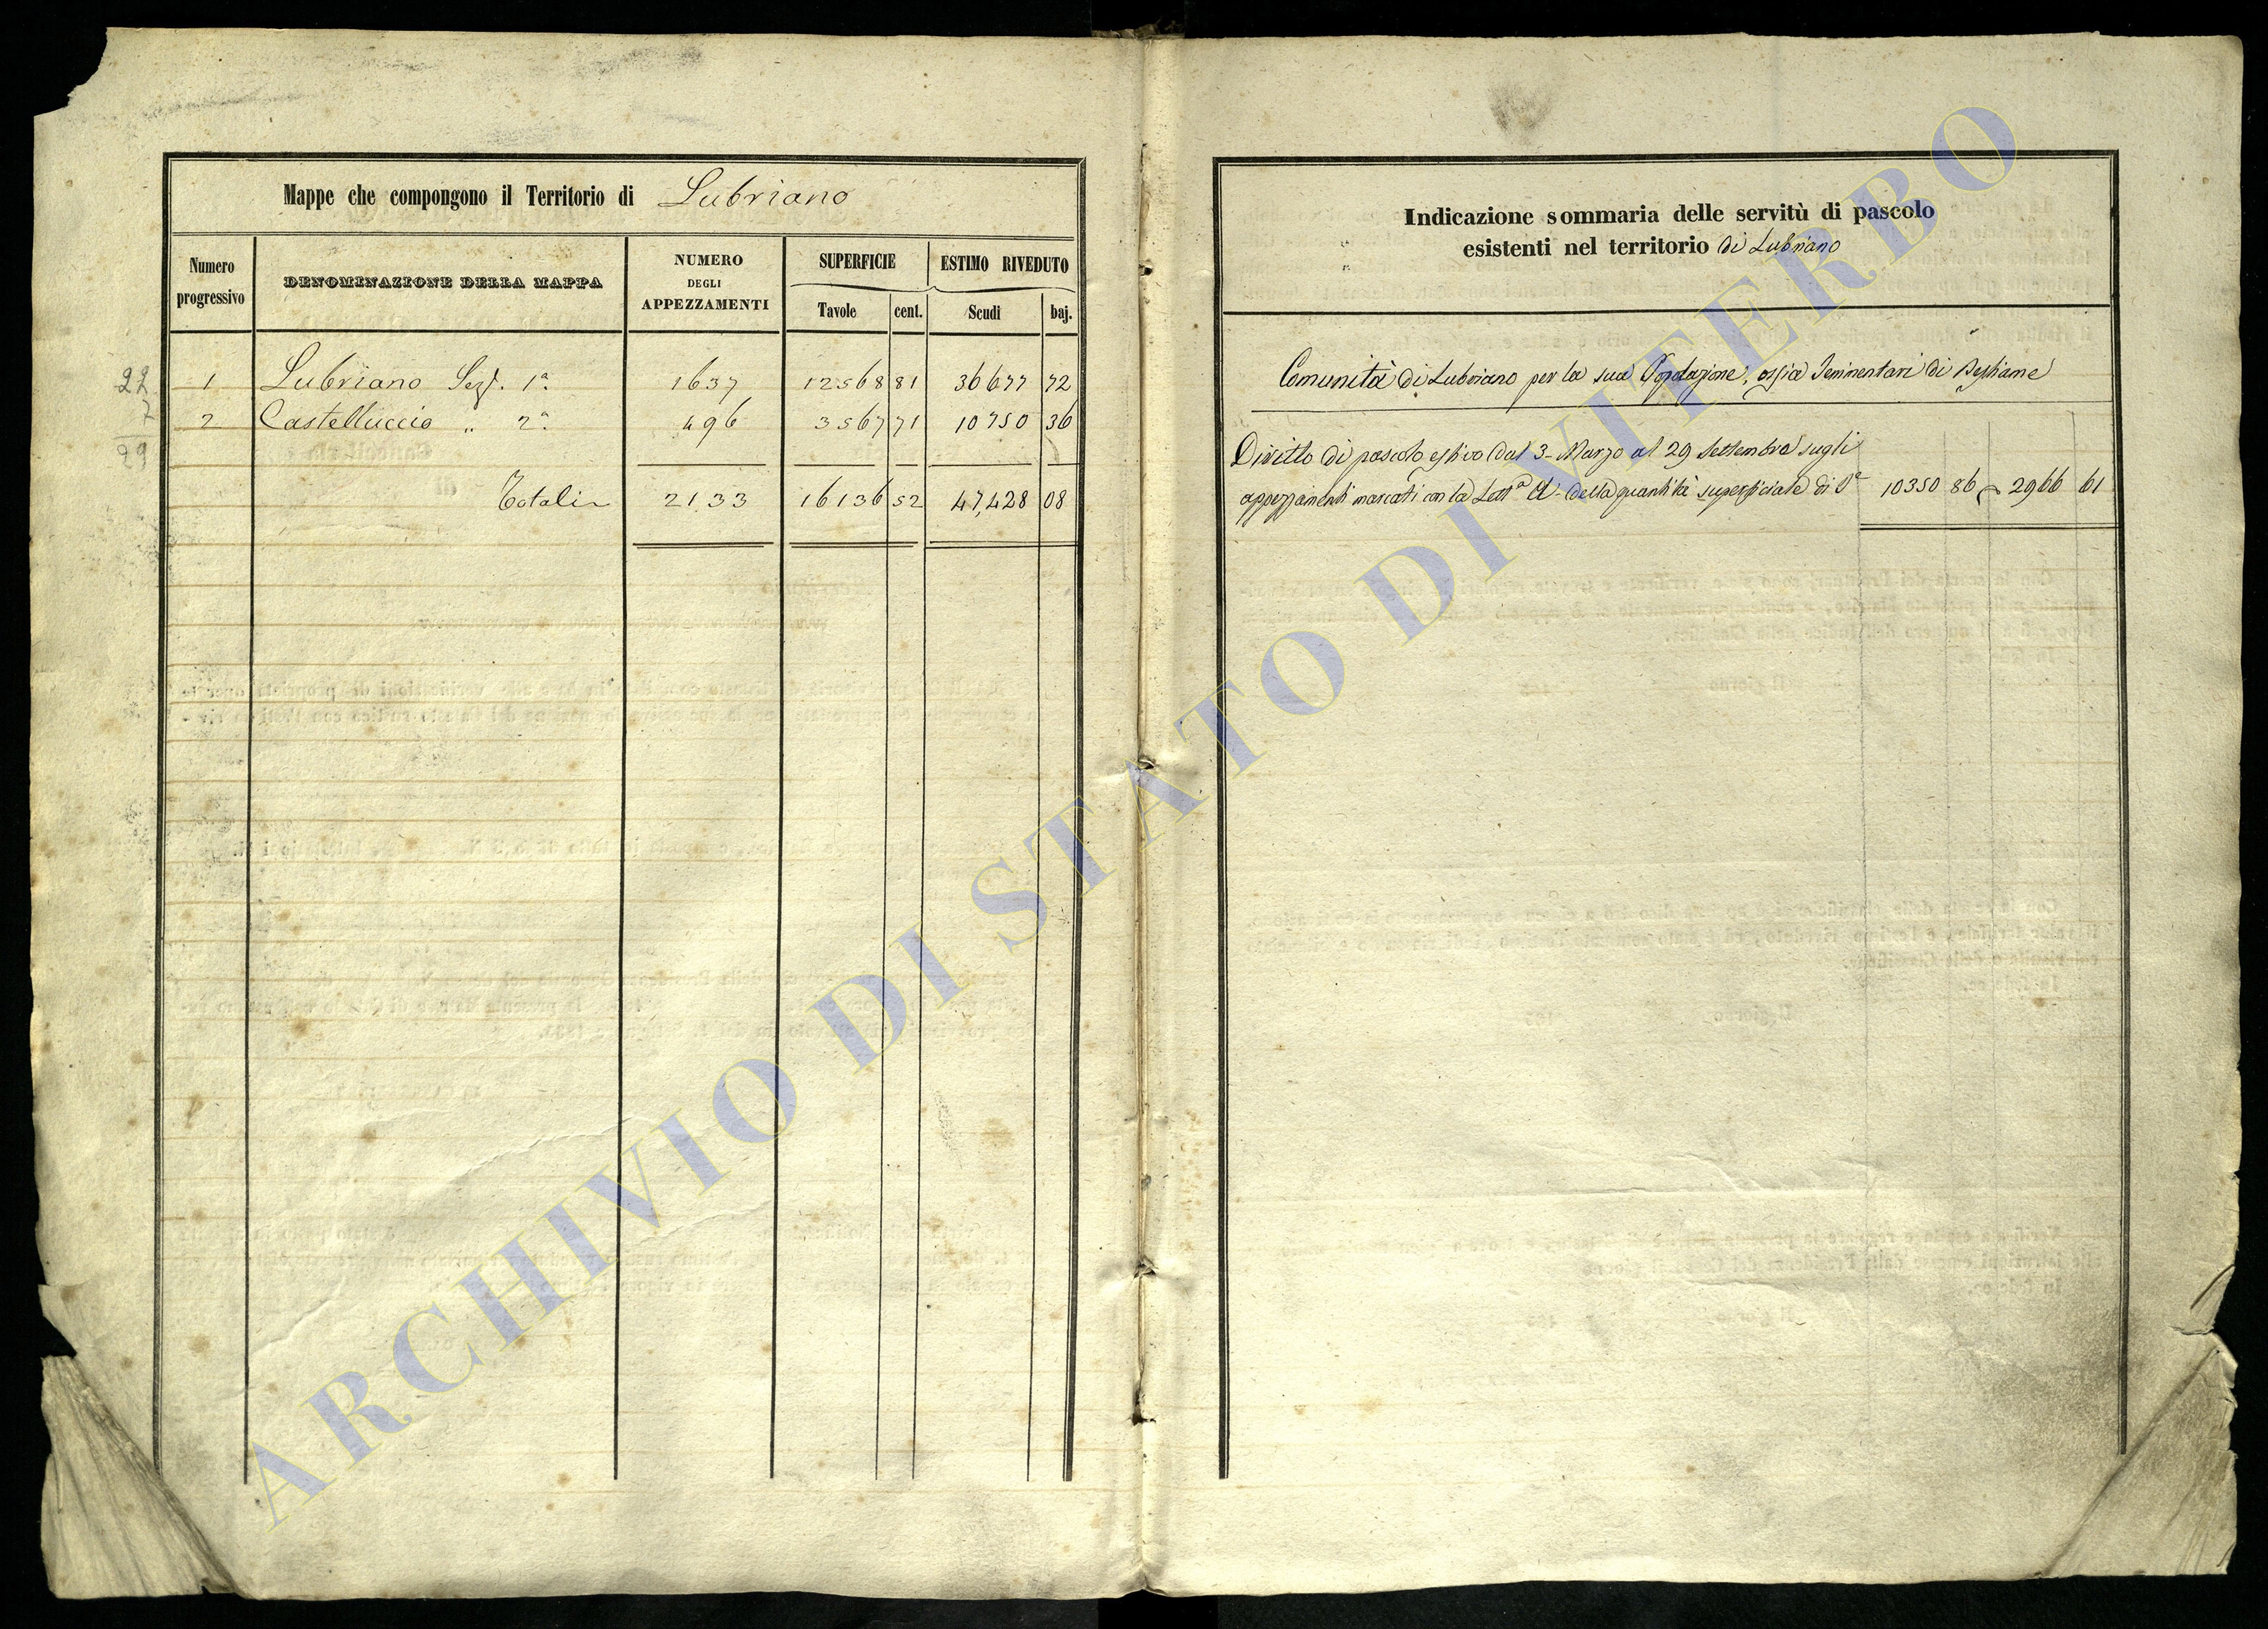 Mappe che compongono il Territorio di Lubriano
Numero progressivo
DENOMINAZIONE DELLA MAPPA
NUMERO DEGLI APPEZZAMENTI
SUPERFICIE
ESTIMO RIVEDUTO
Tavole cent. Scudi baj.
22 1 Lubriano Sez. 1ª 1637 12568 81 36677 72
7 2 Castelluccio „ 2ª 496 3567 71 10750 36
29
Totali 2133 16136 52 47,428 08
Indicazione sommaria delle servitù di pascolo
esistenti nel territorio di Lubriano
Comunità di Lubriano per la sua Popolazione, ossia Jemmentari di Bestiame
Diritto di pascolo estivo dal 3 Marzo al 29 Settembre sugli
appezzamenti marcati con la Lettª A. della quantità superficiale di 10350 86 2966 61
ARCHIVIO DI STATO DI VITERBO